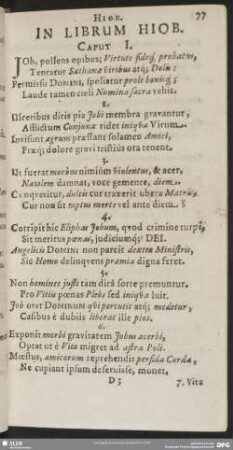 HIOB.
77
IN LIBRUM HIOB.
CAPUT I.
JOb, pollens opibus; Virtute fideq́; probatus,
Tentatur Sathanæ viribus atq́; Dolis:
Permissu DOMINI, spoliatur prole bonisq́;
Laude tamen cœli Numina sacra vehit.
2.
Ulceribus diris pia Jobi membra gravantur,
Afflictum Conjunx ridet iniqva Virum.
Invisunt ægrum præstant solamen Amici,
Præq́; dolore gravi tristius ora tenent.
3.
Ut fuerat morbus nimium violentus, & acer,
Natalem damnat, voce gemente, diem.
Conqveritur, dulcis cur traxerit ubera Matris,
Cur non sit raptus morte vel ante diem.
4.
Corripit hic Eliphas Jobum, qvod crimine turpi,
Sit meritus pœnas, judiciumq́; DEI.
Angelicis DOMINI non parcit dextra Ministris,
Sic Homo delinqvens præmia digna feret.
5.
Non homines justi tam dirâ sorte premuntur.
Pro Vitiis pœnas Plebs sed iniqva luit.
Job oret DOMINUM qvi percutit atq́; medetur,
Casibus è dubiis liberat ille pios.
6.
Exponit morbi gravitatem Jobus acerbi,
Optat ut è Vita migret ad astra Poli.
Mœstus, amicorum reprehendit perfida Corda,
Ne cupiant ipsum deseruisse, monet.
D 3
7. Vita